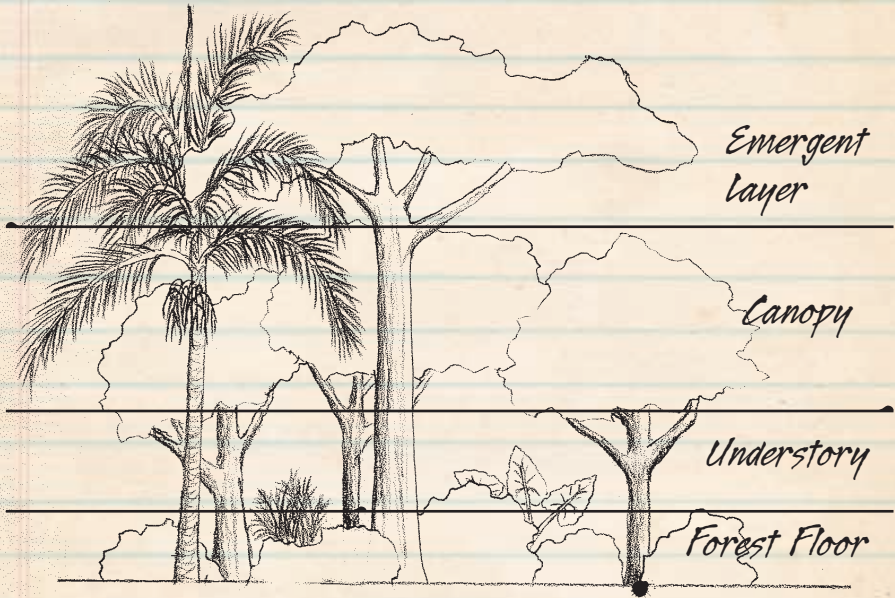 Emergent
layer
Canopy
Understory
Forest Floor